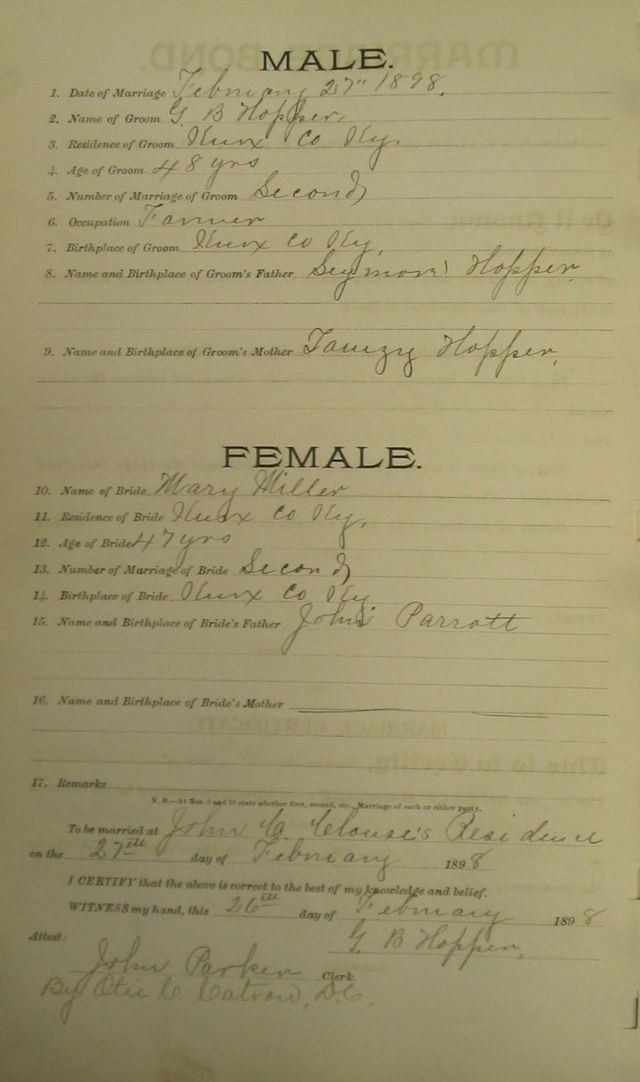 MALE.
1. Date of Marriage February 27" 1898.
2. Name of Groom G. B Hopper,
3. Residence of Groom Knox Co Ky.
4. Age of Groom 48 yrs
5. Number of Marriage of Groom Second
6. Occupation Farmer
7. Birthplace of Groom Knox Co Ky,
8. Name and Birthplace of Groom's Father Seymore Hopper.
9. Name and Birthplace of Groom's Mother Tamzy Hopper,
FEMALE.
10. Name of Bride Mary Miller
11. Residence of Bride Knox Co Ky,
12. Age of Bride 47 yrs
13. Number of Marriage of Bride Second
14. Birthplace of Bride Knox Co Ky
15. Name and Birthplace of Bride's Father John Parrott
16. Name and Birthplace of Bride's Mother
17. Remarks
N. B.—At Nos. 5 and 13 state whether first, second, etc., Marriage of each or either party.
To be married at John C. Clouse's Residence
on the 27th day of February 1898
I CERTIFY that the above is correct to the best of my knowledge and belief.
WITNESS my hand, this 26th day of February 1898
G. B Hopper,
Attest:
John Parker Clerk.
By C. D.C.